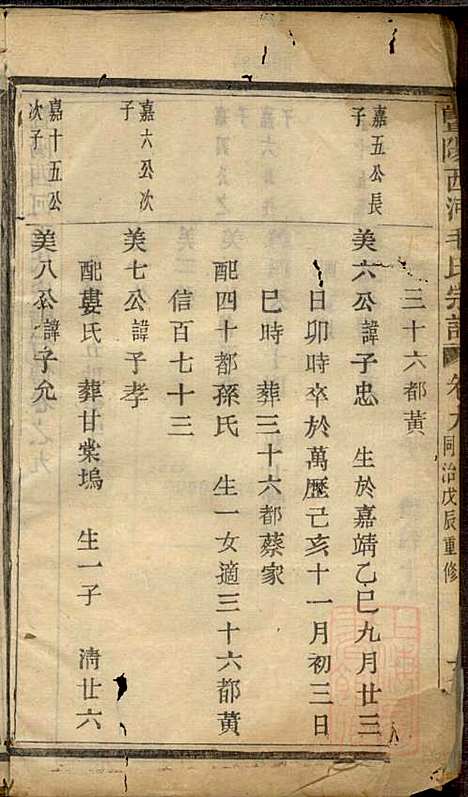 暨陽西河毛氏宗譜 卷之九 同治戊辰重修
三十六都黃
嘉五公長
子
美六公諱子忠 生於嘉靖乙巳九月廿三
日卯時卒於萬歷己亥十一月初三日
巳時 葬三十六都蔡家
配四十都孫氏 生一女適三十六都黃
信百七十三
嘉六公次
子
美七公諱子孝
配婁氏 葬甘棠塢 生一子 清廿六
嘉十五公
次子
美八公諱子允